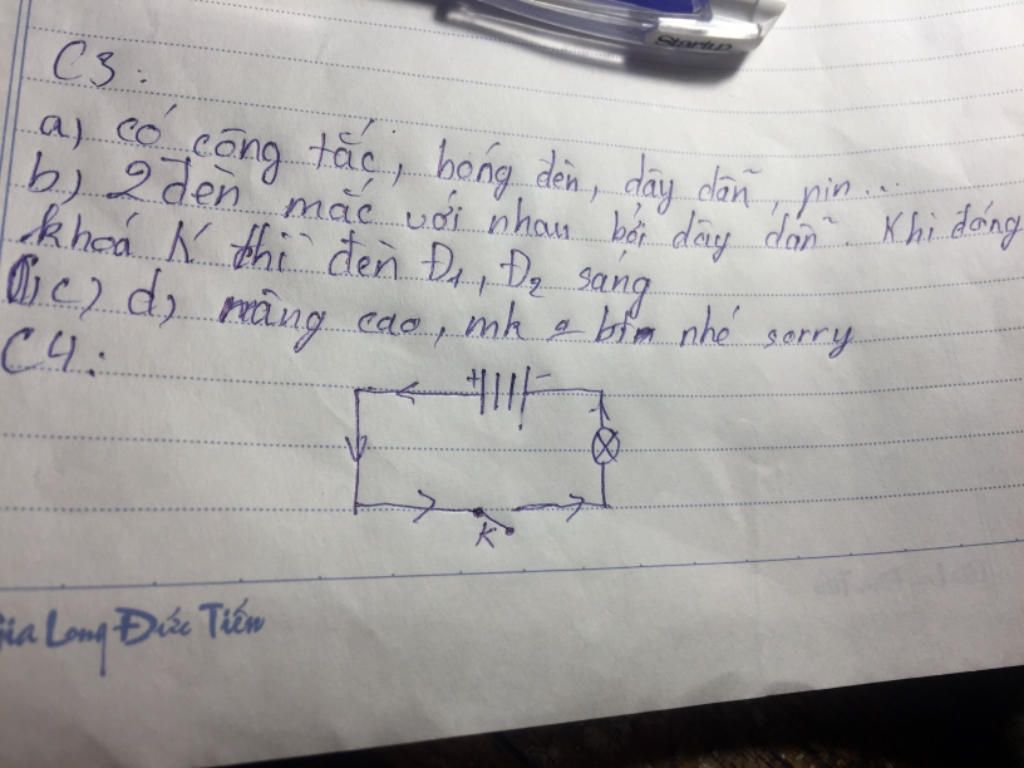 Startup
C3:
a) có công tắc, bóng đèn, dây dẫn, pin...
b) 2 đèn mắc với nhau bởi dây dẫn. Khi đóng
khoá K thì đèn Đ1, Đ2 sáng
c) d) nâng cao, mk nhé sorry
C4:
+ -
K
Gia Long Đức Tiến